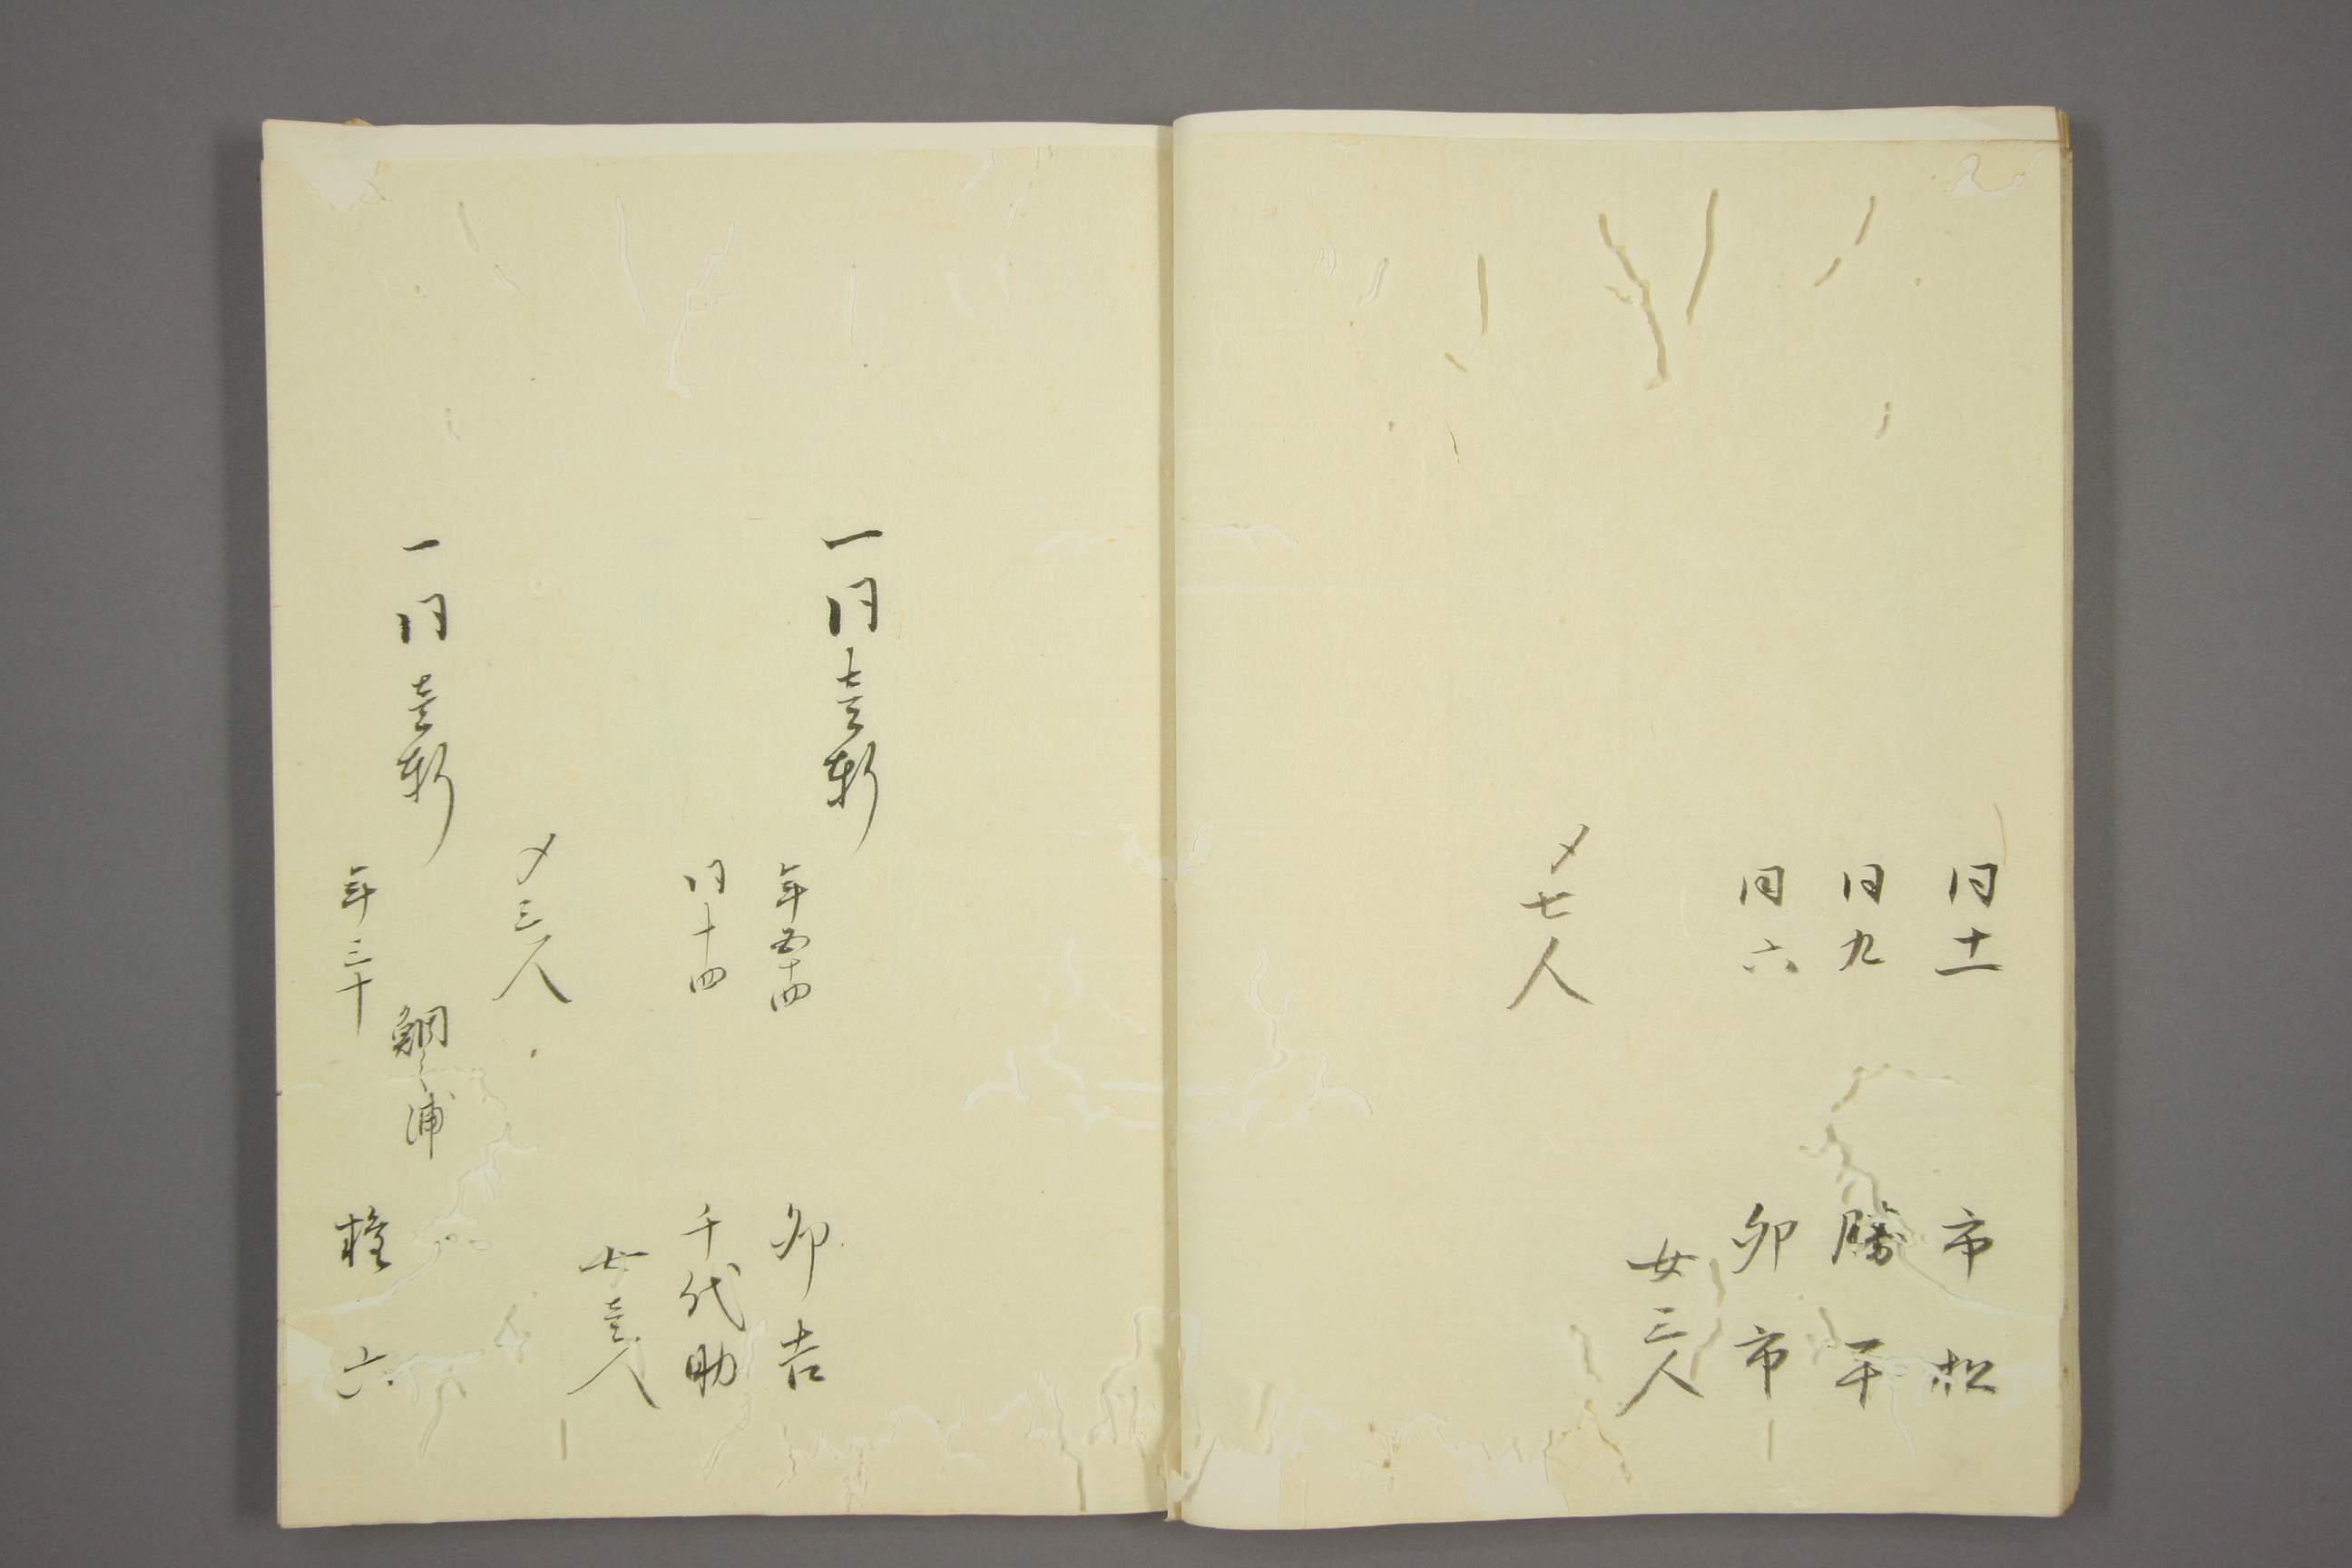 同十一 市松
同九 勝平
同六 卯市
女三人
〆七人
一同壱軒
年五十四 卯吉
同十四 千代助
女壱人
〆三人
一同壱軒
鯛之浦
年三十 権六